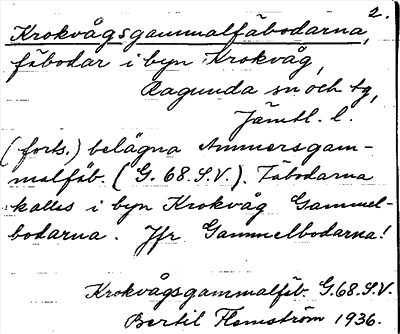 2.
Krokvågsgammalfäbodarna,
fäbodar i byn Krokvåg,
Ragunda sn och tg,
Jämtl. l.
(forts.) belägna Ammersgam-
malfäb. (G. 68. S.V.). Fäbodarna
kallas i byn Krokvåg Gammel-
bodarna. Jfr Gammelbodarna!
Krokvågsgammalfäb. G.68.S.V.
Bertil Flemström 1936.